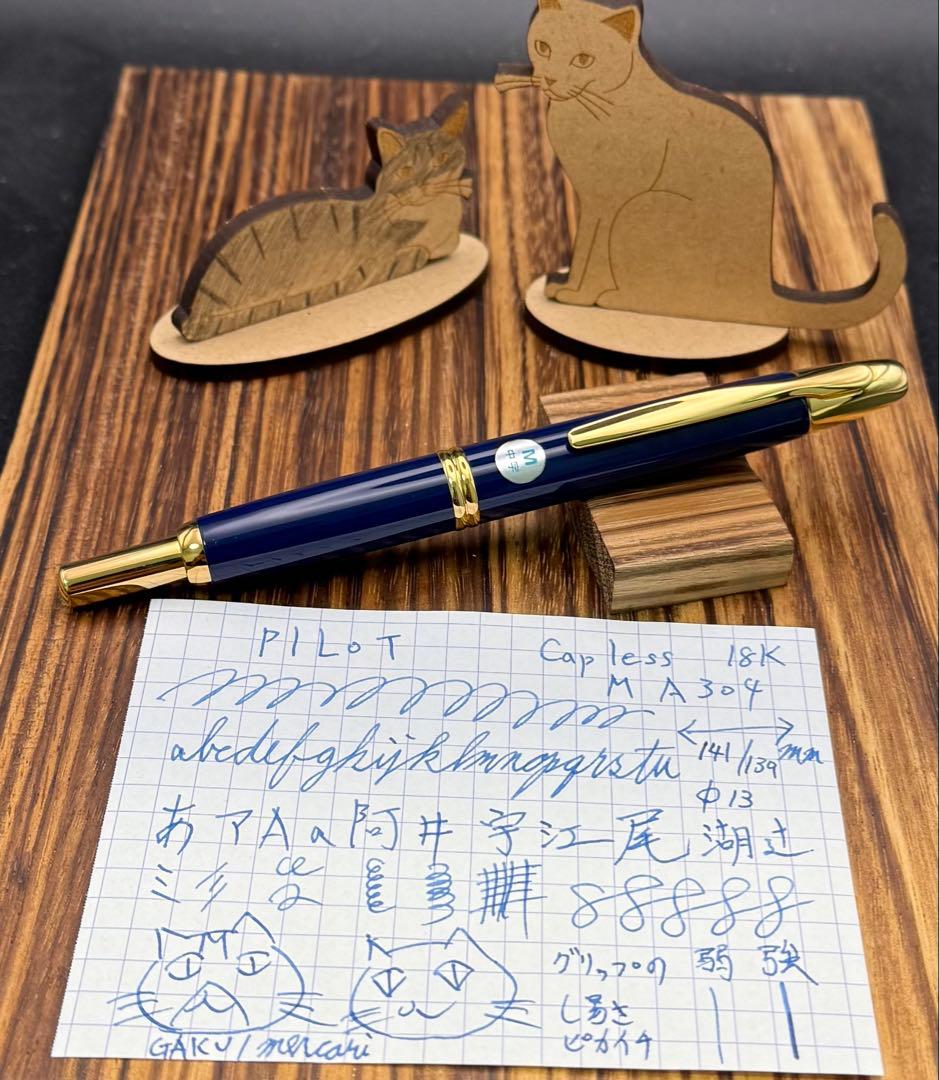 M
中字
PILOT Capless 18K
MA304
abcdefghijklmnopqrstu 141/139mm
φ13
あアAa阿井宇江尾湖辻
ミ
グリップの 弱 強
しまき
ピカイチ
GAKU/mercari